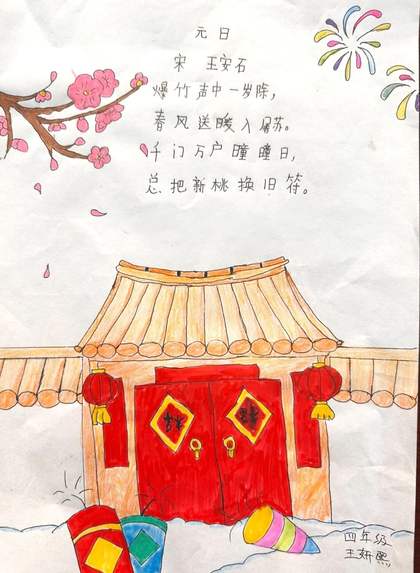 元日
宋 王安石
爆竹声中一岁除，
春风送暖入屠苏。
千门万户曈曈日，
总把新桃换旧符。
四年级
王妍熙